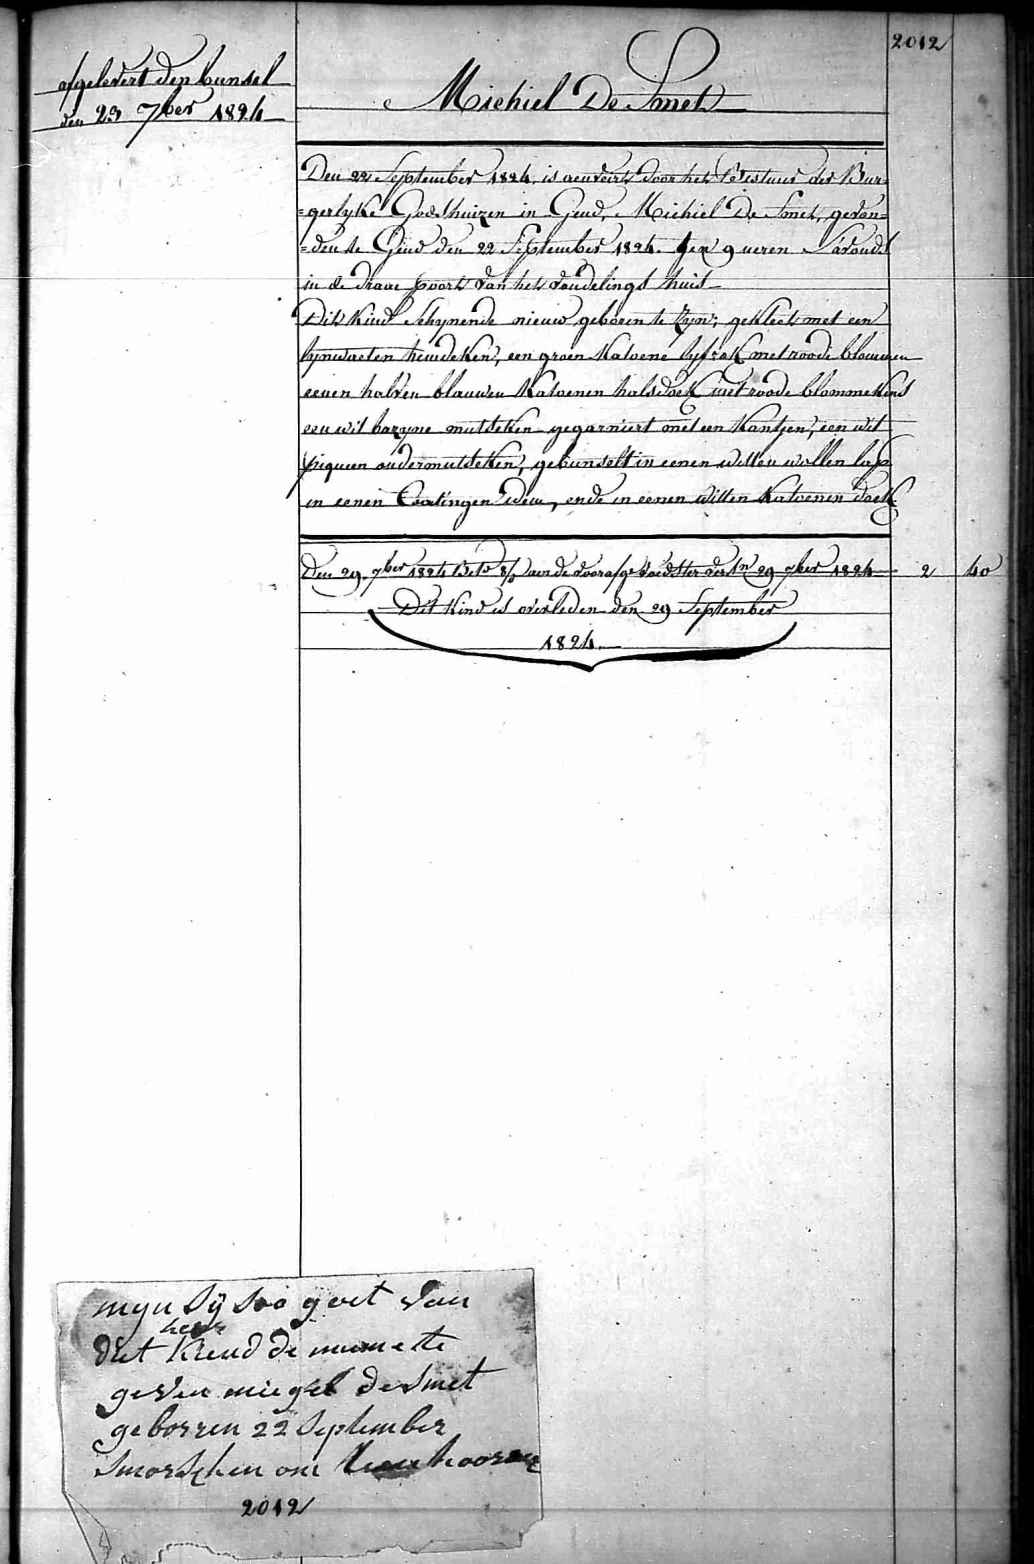 2012
afgelevert den bunsel
den 29 7ber 1824
Michiel De Smet
Den 22 September 1824, is aenveirt door het Bestuur der Bur=
=gerlyke Godshuizen in Gend, Michiel De Smet, gevon=
=den te Gend den 22 September 1824. ten 9 ueren S'avonds
in de draae poort van het vondelings huis
Dit Kind Schynende nieuw geboren te Zyn; gekleet met een
lynwaeten hemdeken, een groen Katoene lyfrok met roode blommen
eenen halven blauwen Katoenen halsdoek met roode blommekens
een wit bazyne mutseken gegarniert met een Kantjen, een wit
piqueen ondermutseken, gebunselt in eenen witten wollen lap
in eenen Coatingen idem, ende in eenen witten Katoenen doek
Den 29. 7ber 1824 aen de voorafge 29 7ber 1824 2 40
Dit Kind is overleden den 29 September
1824.
myn Sÿ soo goet van
diet kiend de name te
heer
geven miegel de Smet
geborren 22 September
Smorschen om
2012